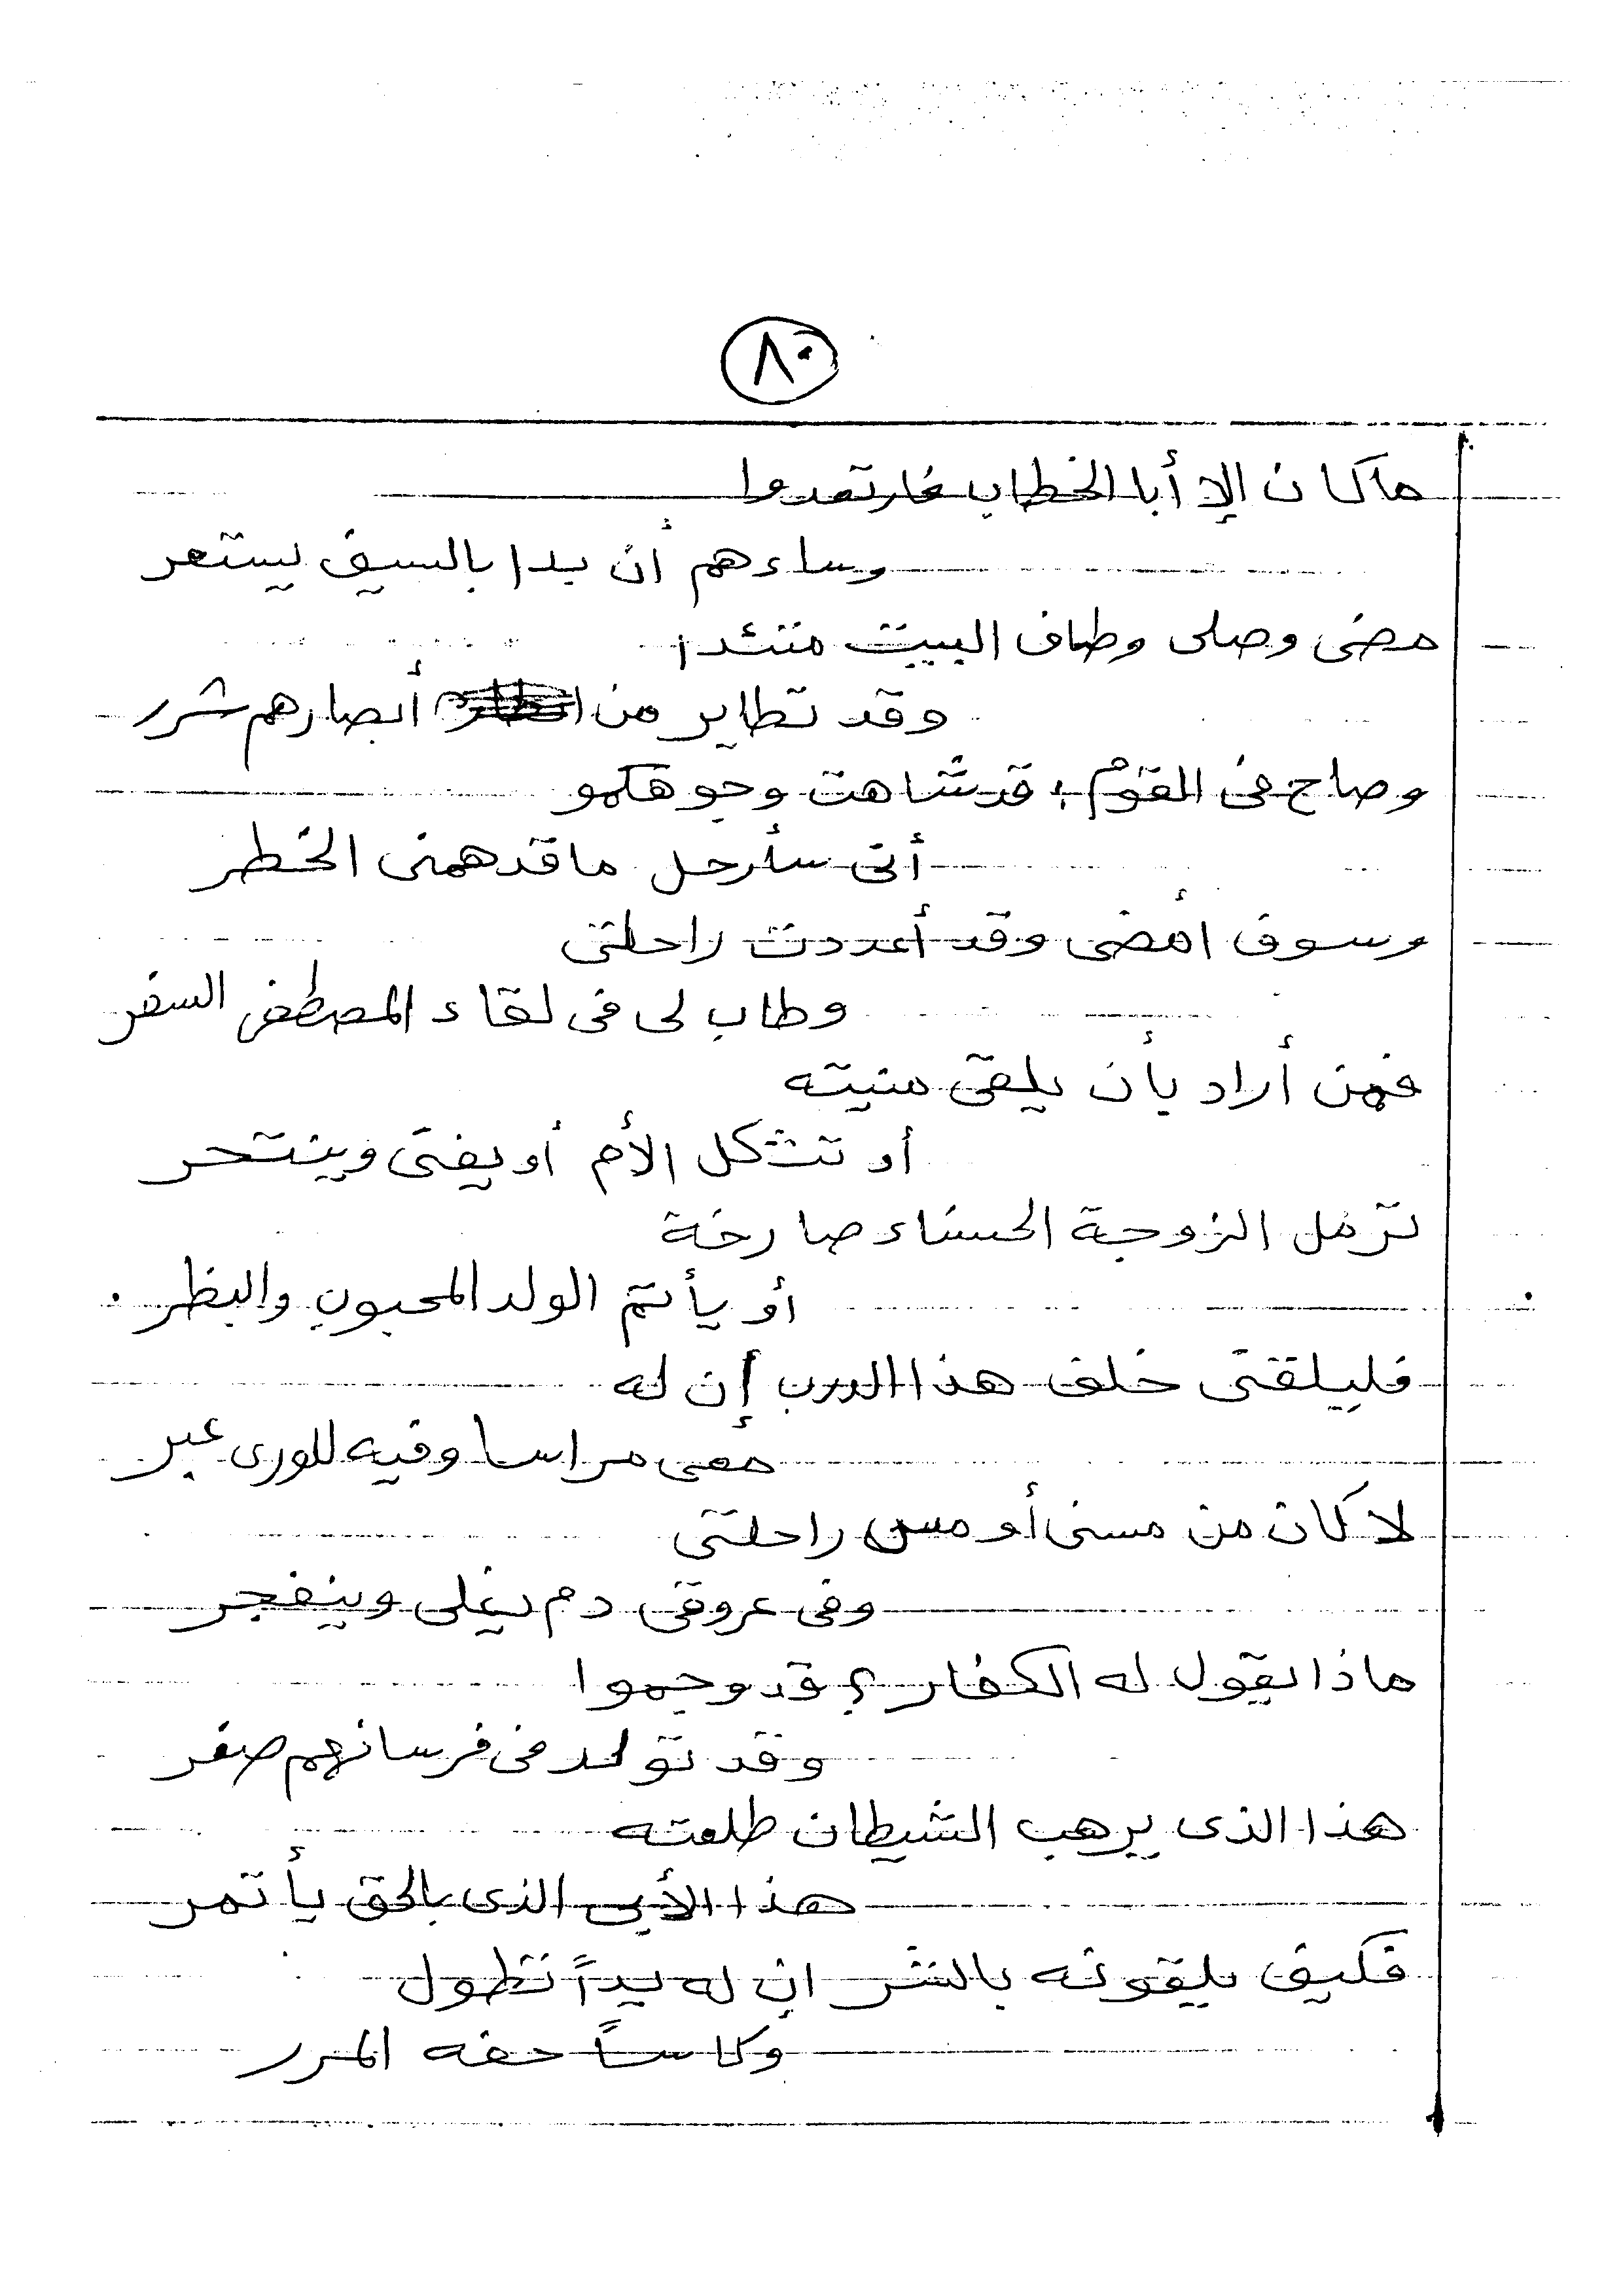 ٨٠
ما كان إلا أبا الخطاب فارتعدوا
وساءهم أن بدا بالسيف يستعر
مضى وصلى وطاف البيت متئدا
وقد تطاير من أبصارهم شرر
وصاح فى القوم؛ قد شاهت وجوهكمو
أنى سأرحل ما قد همنى الخطر
وسوف أمضى وقد أعددت راحلتى
وطاب لى فى لقاء المصطفى السفر
فمن أراد بأن يلقى منيته
أو تثكل الأم أو يفنى وينتحر
ترمل الزوجة الحسناء صارخة
أو يأتم الولد المحبوب
فليلقنى خلف هذا الدرب إن له
معى مراسا وفيه للورى عبر
لا كان من مسنى أو مس راحلتى
وفى عروقى دم يغلى وينفجر
ماذا يقول له الكفار؟ قد وجموا
وقد تولد فى فرسانهم صغر
هذا الذى يرهب الشيطان طلعته
هذا الأبى الذى بالحق يأتمر
فكيف يلقونه بالشر إن له يداً تطول
وكاساً حفه المرر